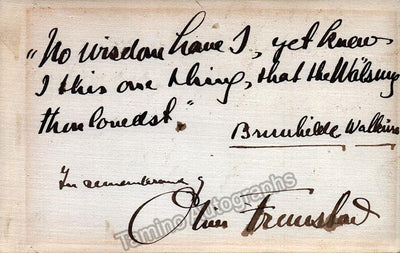 "No wisdom have I, yet knew
I this one thing, that the Wälsung
thou lovedst."
Brünnhilde Walküre
In remembrance of
Olive Fremstad
Tamino Autographs